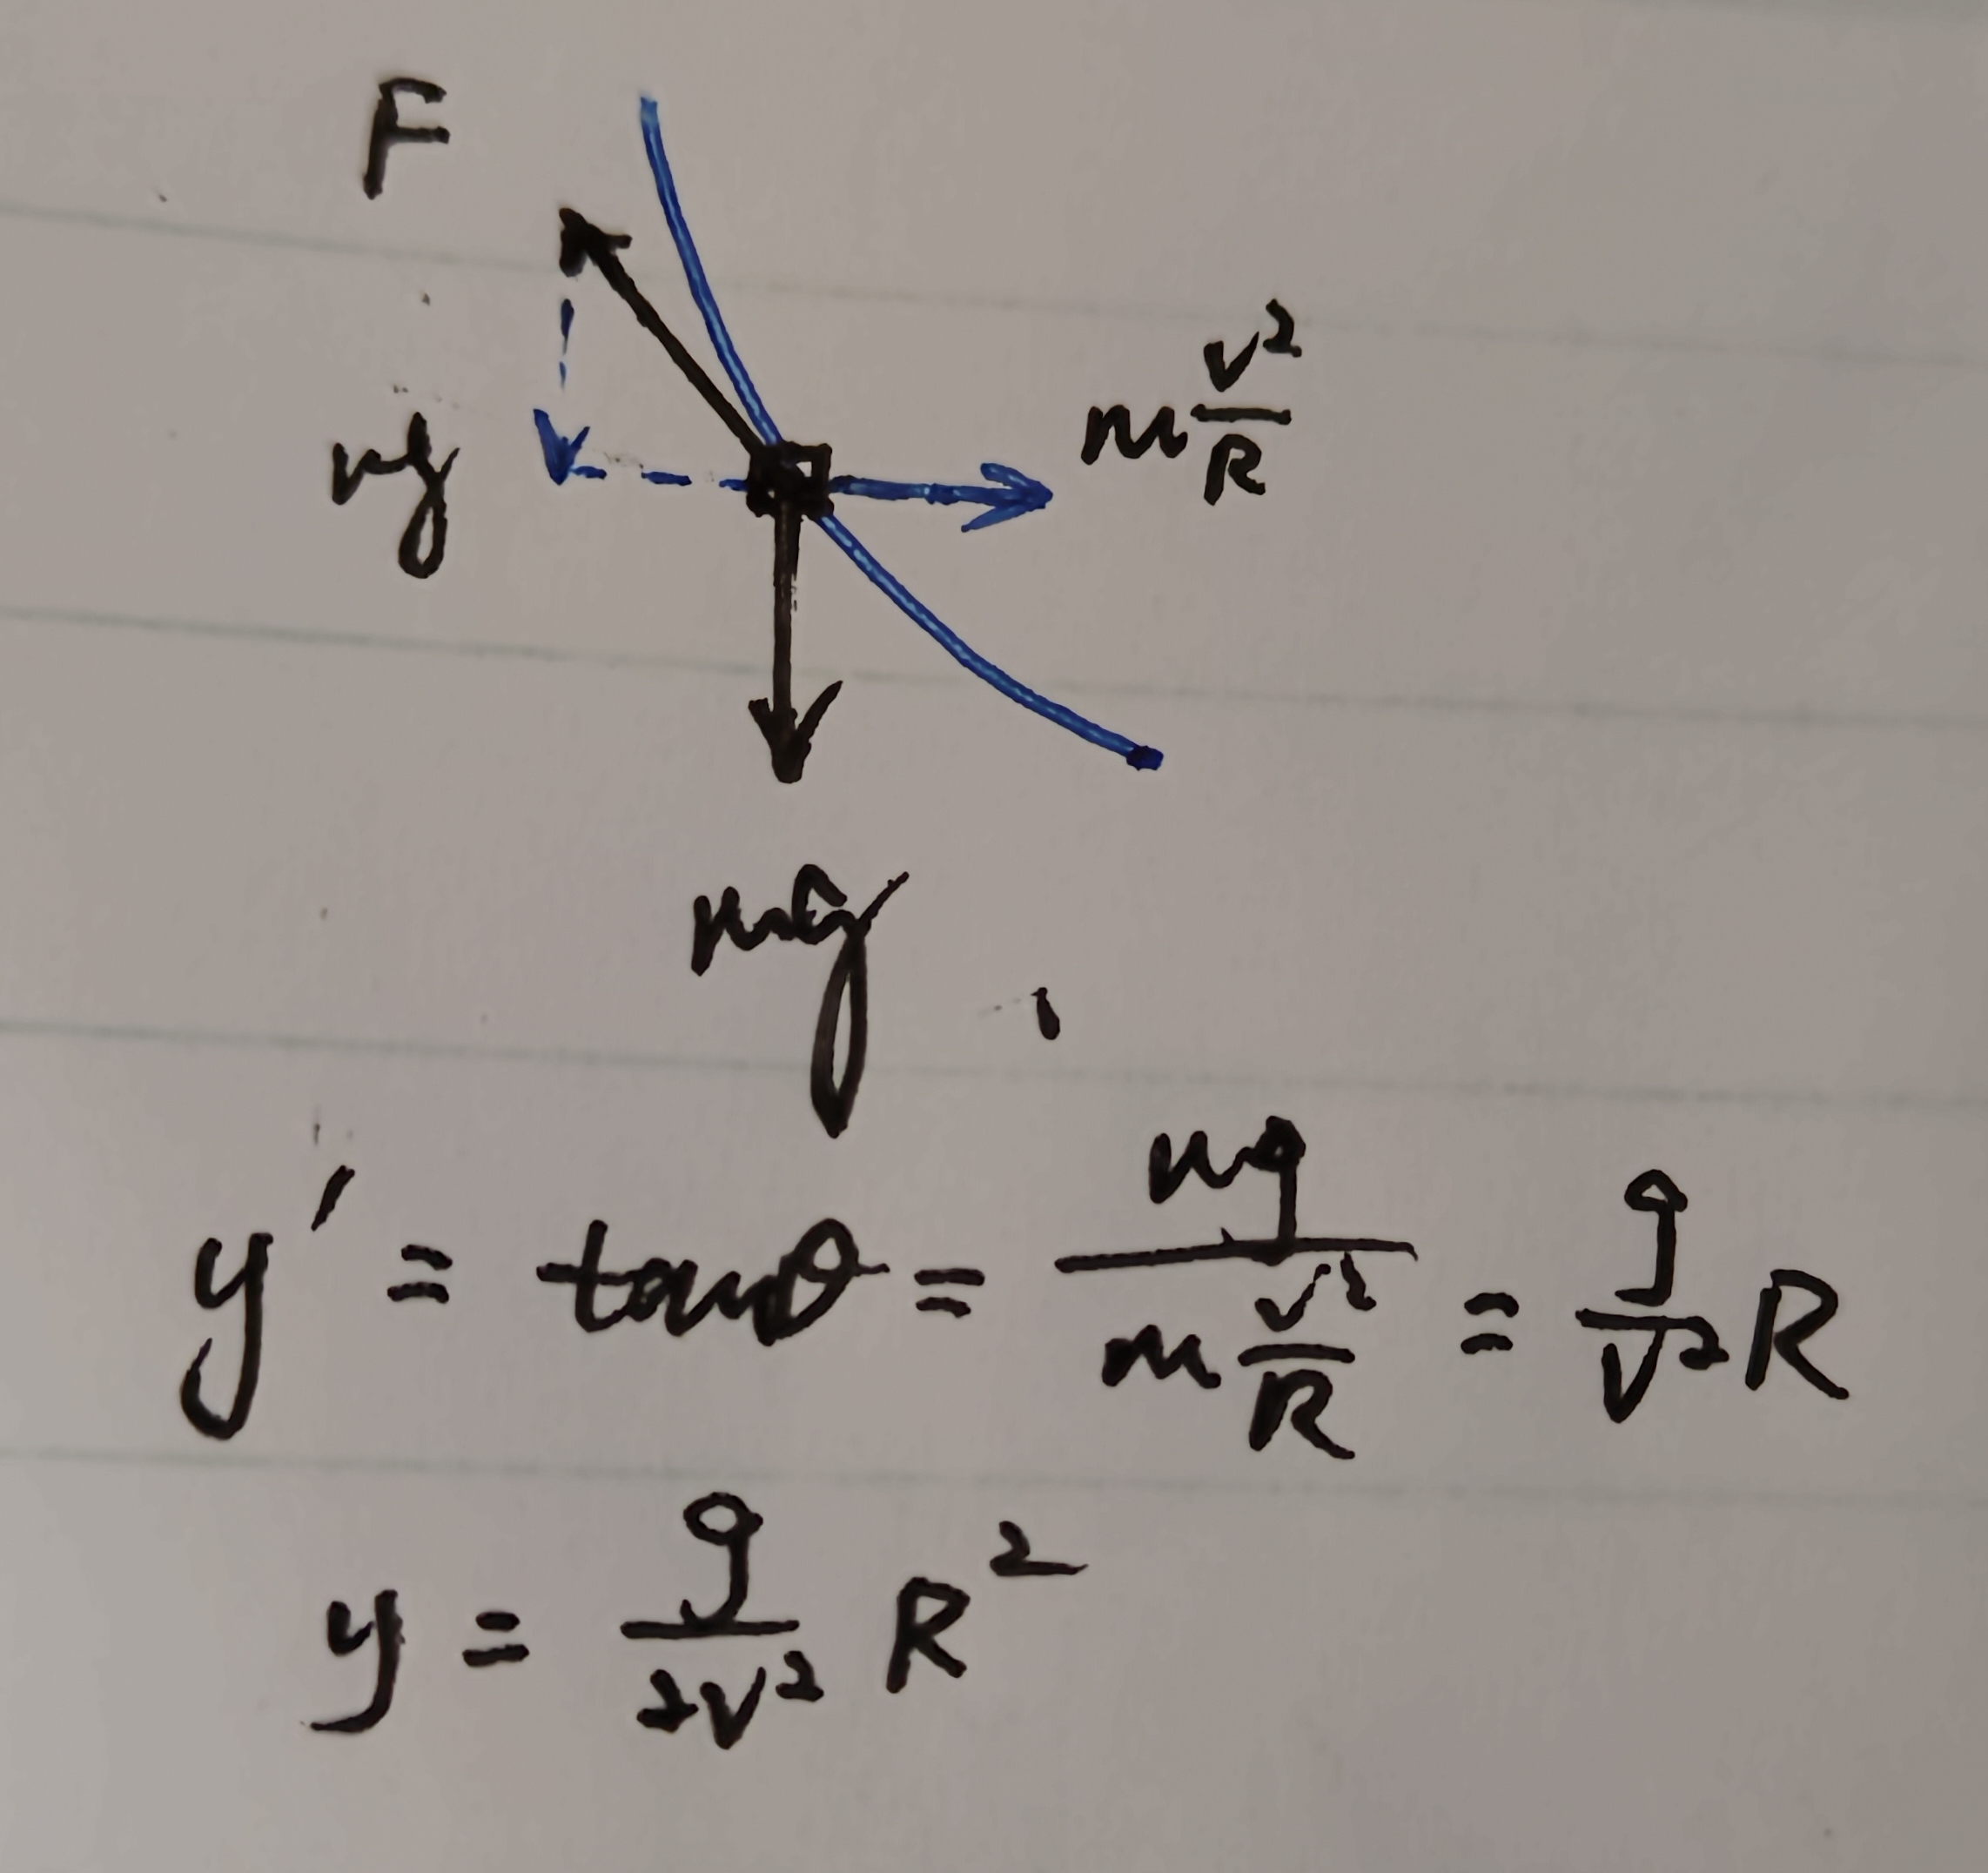 F
mg
m v²/R
mg
y' = tanθ = mg / (m v²/R) = g/v² R
y = g/2v² R²